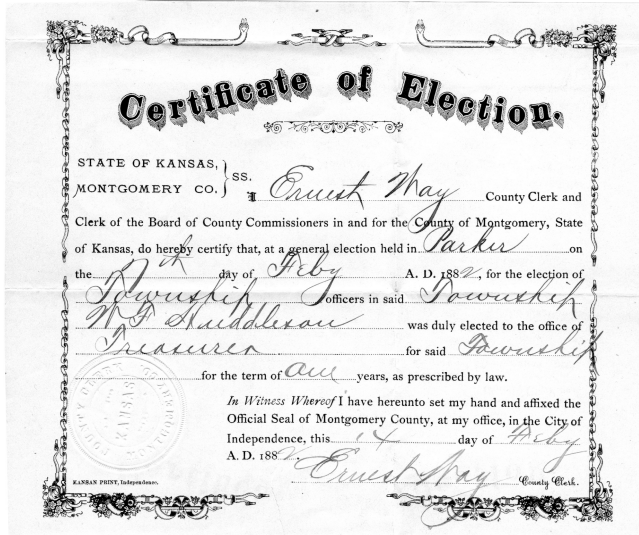 Certificate of Election.
STATE OF KANSAS,
MONTGOMERY CO.
} SS.
I Ernest Way County Clerk and
Clerk of the Board of County Commissioners in and for the County of Montgomery, State
of Kansas, do hereby certify that, at a general election held in Parker on
the 7th day of Feby A. D. 1882, for the election of
Township officers in said Township
W F Huddleson was duly elected to the office of
Treasurer for said Township
for the term of one years, as prescribed by law.
In Witness Whereof I have hereunto set my hand and affixed the
Official Seal of Montgomery County, at my office, in the City of
Independence, this 14 day of Feby
A. D. 1882.
Ernest Way County Clerk.
KANSAN PRINT, Independence.
COUNTY CLERK
KANSAS